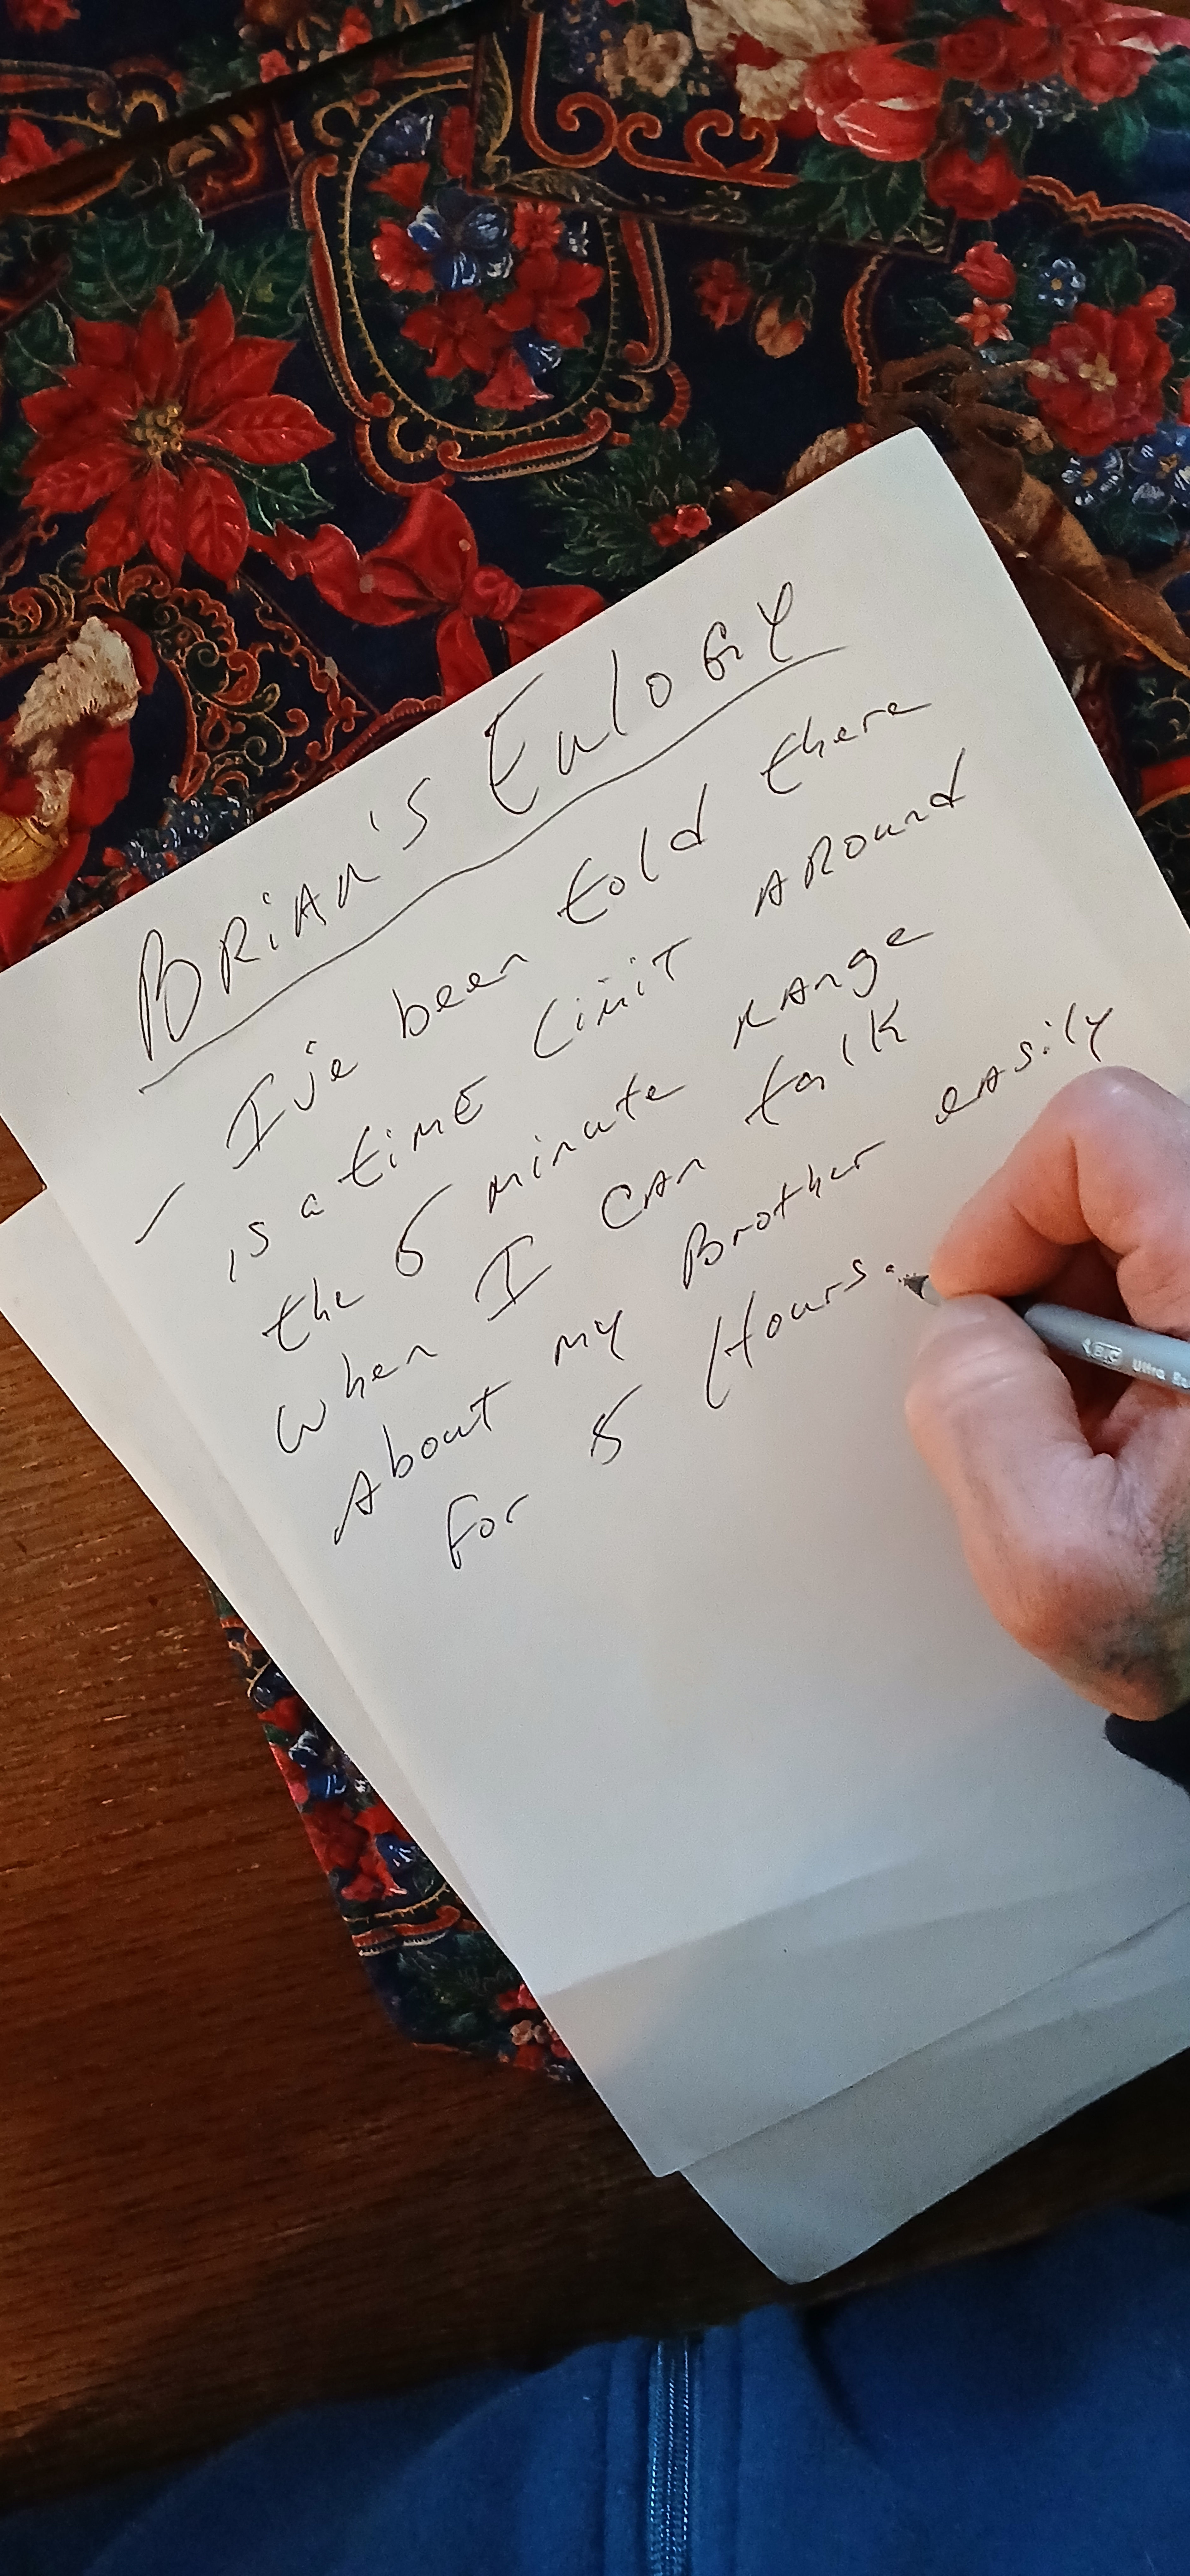 BRiAn's EulOGY
- I've been told there
is a timE Limit ARound
the 5 minute RAnge
when I CAn talk
About my Brother eAsily
For 5 Hours.
BIC Ultra